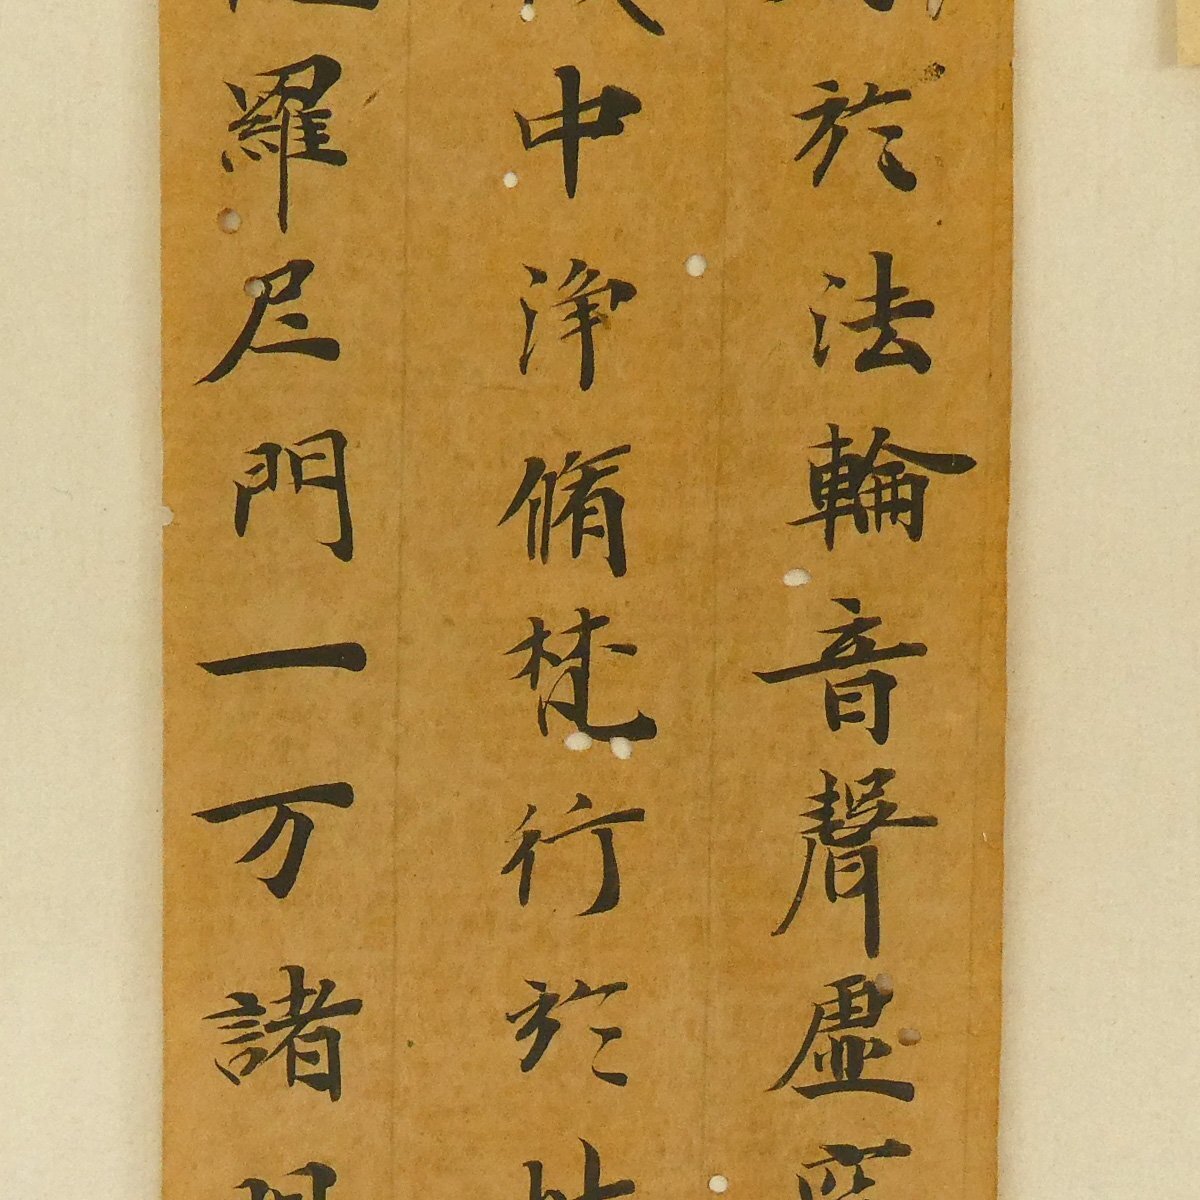 於法輪音聲虛空
中淨脩梵行於
羅尼門一万諸